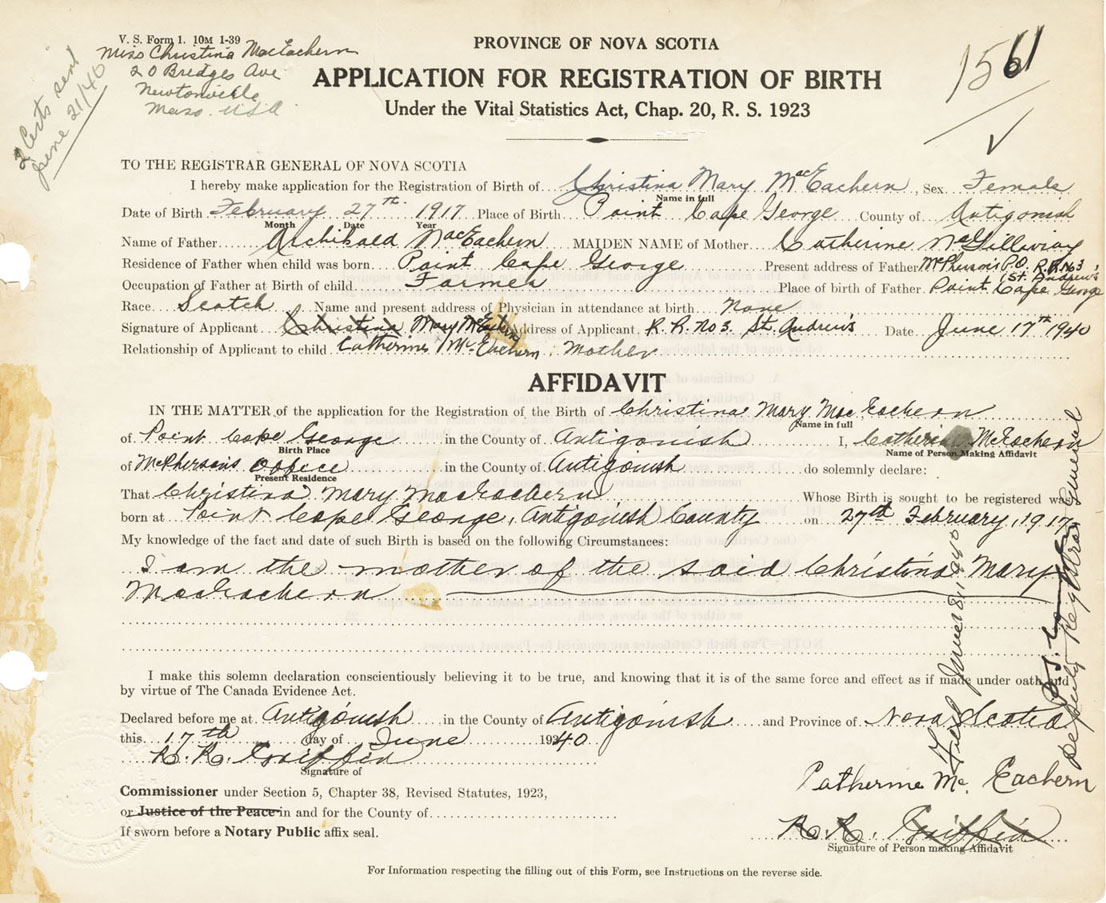 V. S. Form 1. 10M 1-39
Miss Christina MacEachern
20 Bridges Ave
Newtonville
Mass. USA
2 Certs sent
June 21/40
1561
PROVINCE OF NOVA SCOTIA
APPLICATION FOR REGISTRATION OF BIRTH
Under the Vital Statistics Act, Chap. 20, R. S. 1923
TO THE REGISTRAR GENERAL OF NOVA SCOTIA
I hereby make application for the Registration of Birth of Christina Mary MacEachern, Sex Female
Name in full
Date of Birth February 27th 1917 Place of Birth Point Cape George County of Antigonish
Month Date Year
Name of Father Archibald MacEachern MAIDEN NAME of Mother Catherine McGillivray
Residence of Father when child was born Point Cape George Present address of Father McPherson's P.O. R.R. No 3 St. Andrew's
Occupation of Father at Birth of child Farmer Place of birth of Father Point Cape George
Race Scotch Name and present address of Physician in attendance at birth None
Signature of Applicant Christina Mary McEachern Address of Applicant R. R. No 3. St. Andrew's Date June 17th 1940
Relationship of Applicant to child Catherine McEachern: Mother
AFFIDAVIT
IN THE MATTER of the application for the Registration of the Birth of Christina Mary MacEachern
Name in full
of Point Cape George in the County of Antigonish I, Catherine McEachern
Birth Place Name of Person Making Affidavit
of McPhersons Office in the County of Antigonish do solemnly declare:
Present Residence
That Christina Mary MacEachern Whose Birth is sought to be registered was
born at Point Cape George, Antigonish County on 27th February, 1917
My knowledge of the fact and date of such Birth is based on the following Circumstances:
I am the mother of the said Christina Mary
MacEachern
I make this solemn declaration conscientiously believing it to be true, and knowing that it is of the same force and effect as if made under oath and
by virtue of The Canada Evidence Act.
Declared before me at Antigonish in the County of Antigonish and Province of Nova Scotia
this 17th day of June 1940
R. R. Griffin
Signature of
Commissioner under Section 5, Chapter 38, Revised Statutes, 1923,
or Justice of the Peace in and for the County of
If sworn before a Notary Public affix seal.
Catherine Mc Eachern
R. R. Griffin
Signature of Person making Affidavit
Filed June 18, 1940
Deputy Registrar General
For Information respecting the filling out of this Form, see Instructions on the reverse side.